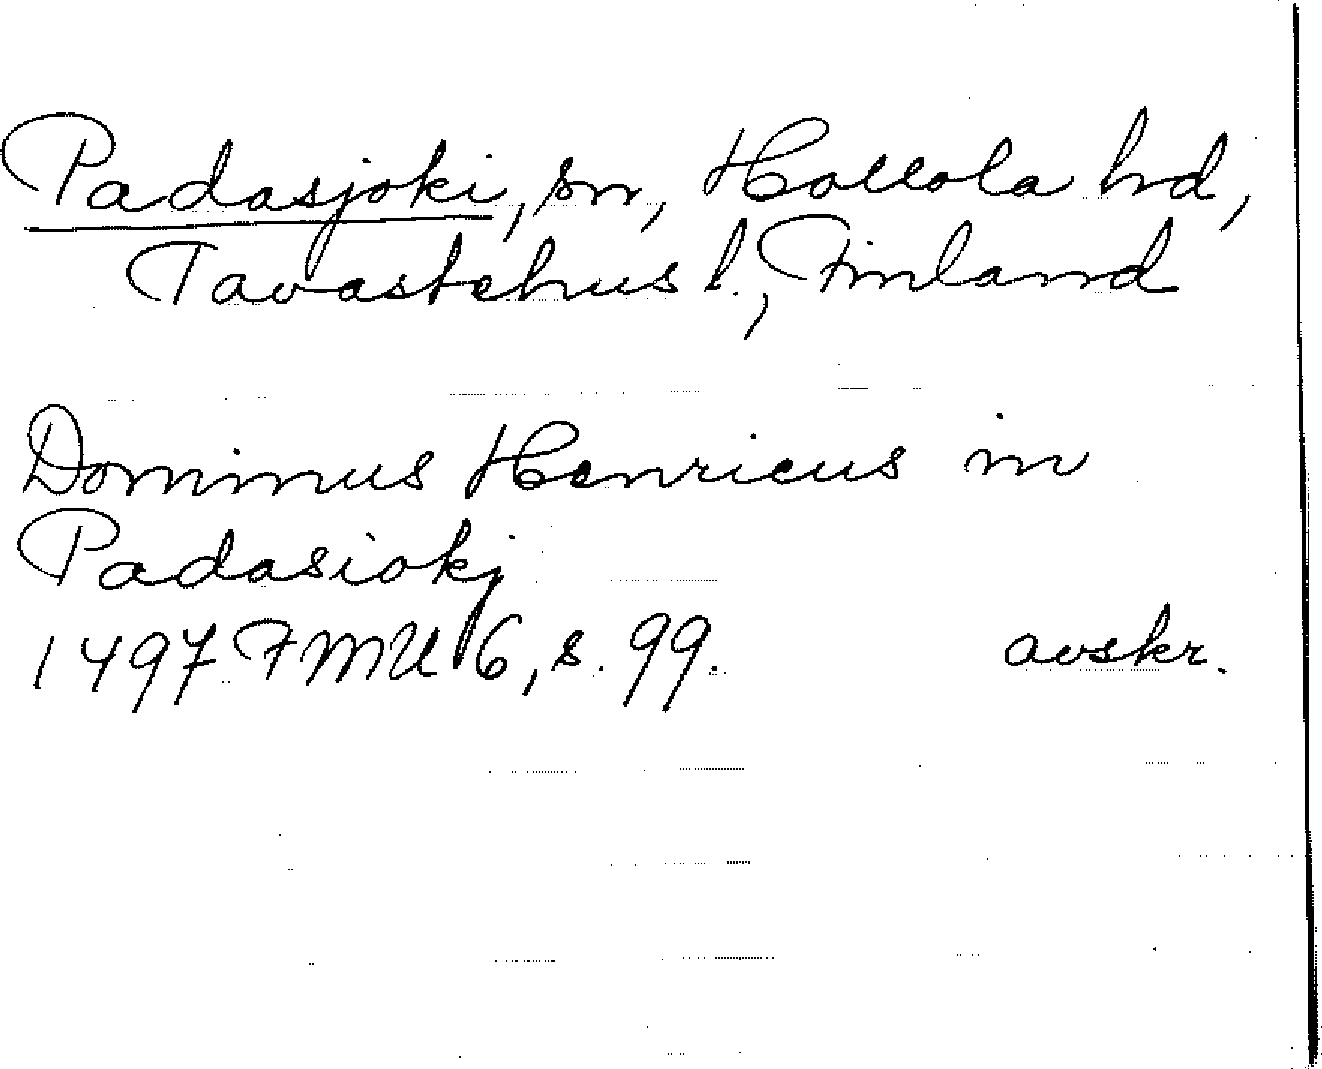 Padasjoki, sn, Hollola hd,
Tavastehus l., Finland
Dominus Henricus in
Padasiokj
1497 FMU 6, s. 99. avskr.